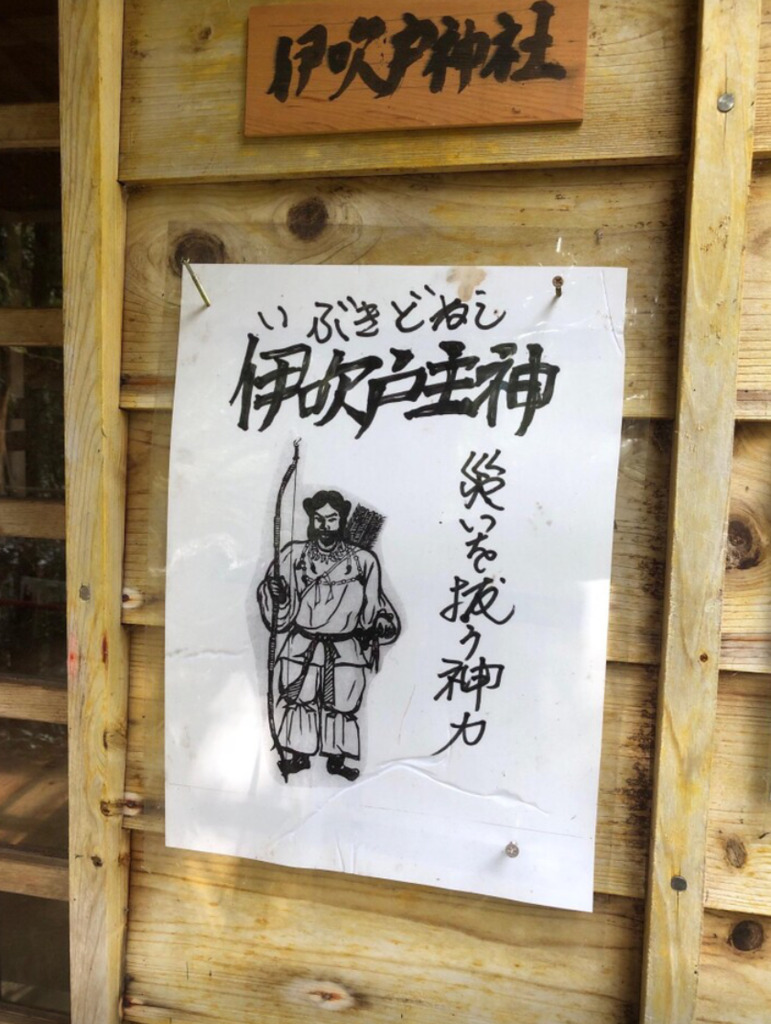 伊吹戸神社
いぶきどぬし
伊吹戸主神
災いを抜う神力